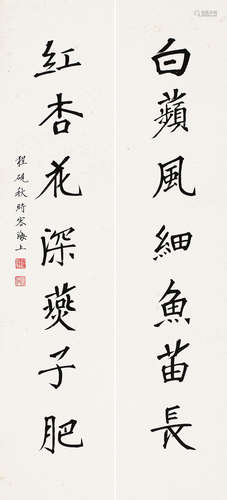 白蘋風細魚苗長
紅杏花深燕子肥
程硯秋時客海上